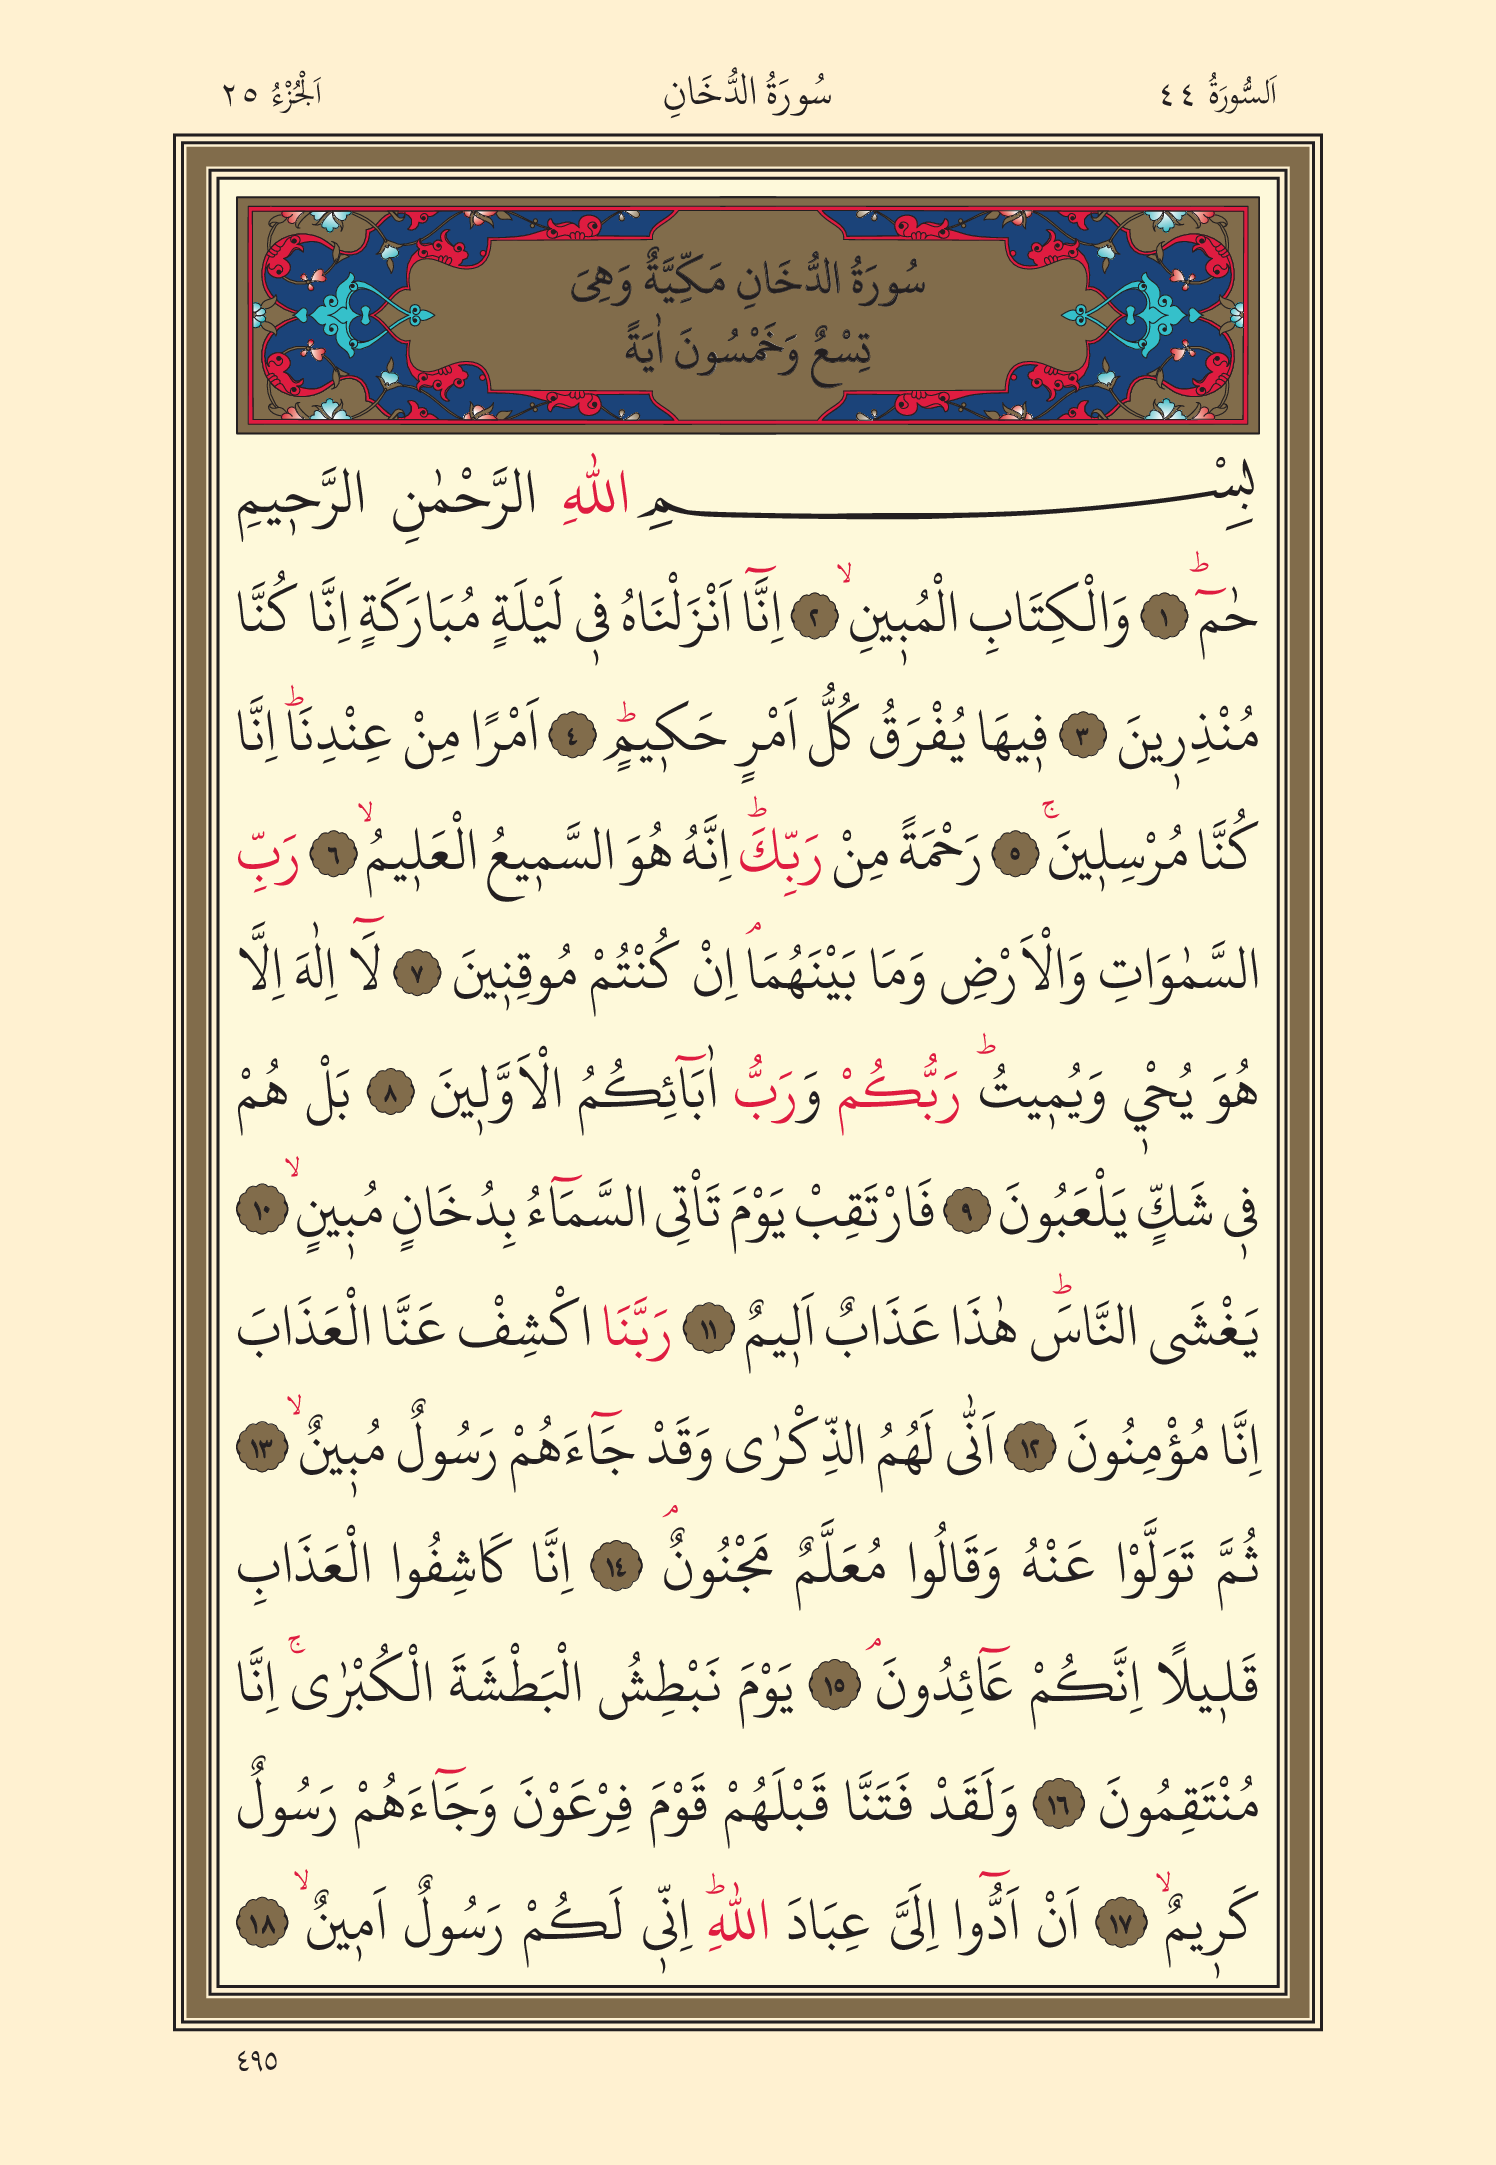 اَلسُّورَةُ ٤٤ سُورَةُ الدُّخَانِ اَلْجُزْءُ ٢٥
سُورَةُ الدُّخَانِ مَكِّيَّةٌ وَهِىَ
تِسْعٌ وَخَمْسُونَ اٰيَةً
بِسْمِ اللّٰهِ الرَّحْمٰنِ الرَّح۪يمِ
حٰمٓۜ ١ وَالْكِتَابِ الْمُب۪ينِۙ ٢ اِنَّٓا اَنْزَلْنَاهُ ف۪ى لَيْلَةٍ مُبَارَكَةٍ اِنَّا كُنَّا
مُنْذِر۪ينَ ٣ ف۪يهَا يُفْرَقُ كُلُّ اَمْرٍ حَك۪يمٍۜ ٤ اَمْرًا مِنْ عِنْدِنَاۜ اِنَّا
كُنَّا مُرْسِل۪ينَۚ ٥ رَحْمَةً مِنْ رَبِّكَۜ اِنَّهُ هُوَ السَّم۪يعُ الْعَل۪يمُۙ ٦ رَبِّ
السَّمٰوَاتِ وَالْاَرْضِ وَمَا بَيْنَهُمَاۢ اِنْ كُنْتُمْ مُوقِن۪ينَ ٧ لَٓا اِلٰهَ اِلَّا
هُوَ يُحْي۪ وَيُم۪يتُۜ رَبُّكُمْ وَرَبُّ اٰبَٓائِكُمُ الْاَوَّل۪ينَ ٨ بَلْ هُمْ
ف۪ى شَكٍّ يَلْعَبُونَ ٩ فَارْتَقِبْ يَوْمَ تَأْتِى السَّمَٓاءُ بِدُخَانٍ مُب۪ينٍۙ ١٠
يَغْشَى النَّاسَۜ هٰذَا عَذَابٌ اَل۪يمٌ ١١ رَبَّنَا اكْشِفْ عَنَّا الْعَذَابَ
اِنَّا مُؤْمِنُونَ ١٢ اَنّٰى لَهُمُ الذِّكْرٰى وَقَدْ جَٓاءَهُمْ رَسُولٌ مُب۪ينٌۙ ١٣
ثُمَّ تَوَلَّوْا عَنْهُ وَقَالُوا مُعَلَّمٌ مَجْنُونٌۢ ١٤ اِنَّا كَاشِفُوا الْعَذَابِ
قَل۪يلًا اِنَّكُمْ عَٓائِدُونَۢ ١٥ يَوْمَ نَبْطِشُ الْبَطْشَةَ الْكُبْرٰىۚ اِنَّا
مُنْتَقِمُونَ ١٦ وَلَقَدْ فَتَنَّا قَبْلَهُمْ قَوْمَ فِرْعَوْنَ وَجَٓاءَهُمْ رَسُولٌ
كَر۪يمٌۙ ١٧ اَنْ اَدُّٓوا اِلَىَّ عِبَادَ اللّٰهِۜ اِنّ۪ى لَكُمْ رَسُولٌ اَم۪ينٌۙ ١٨
٤٩٥